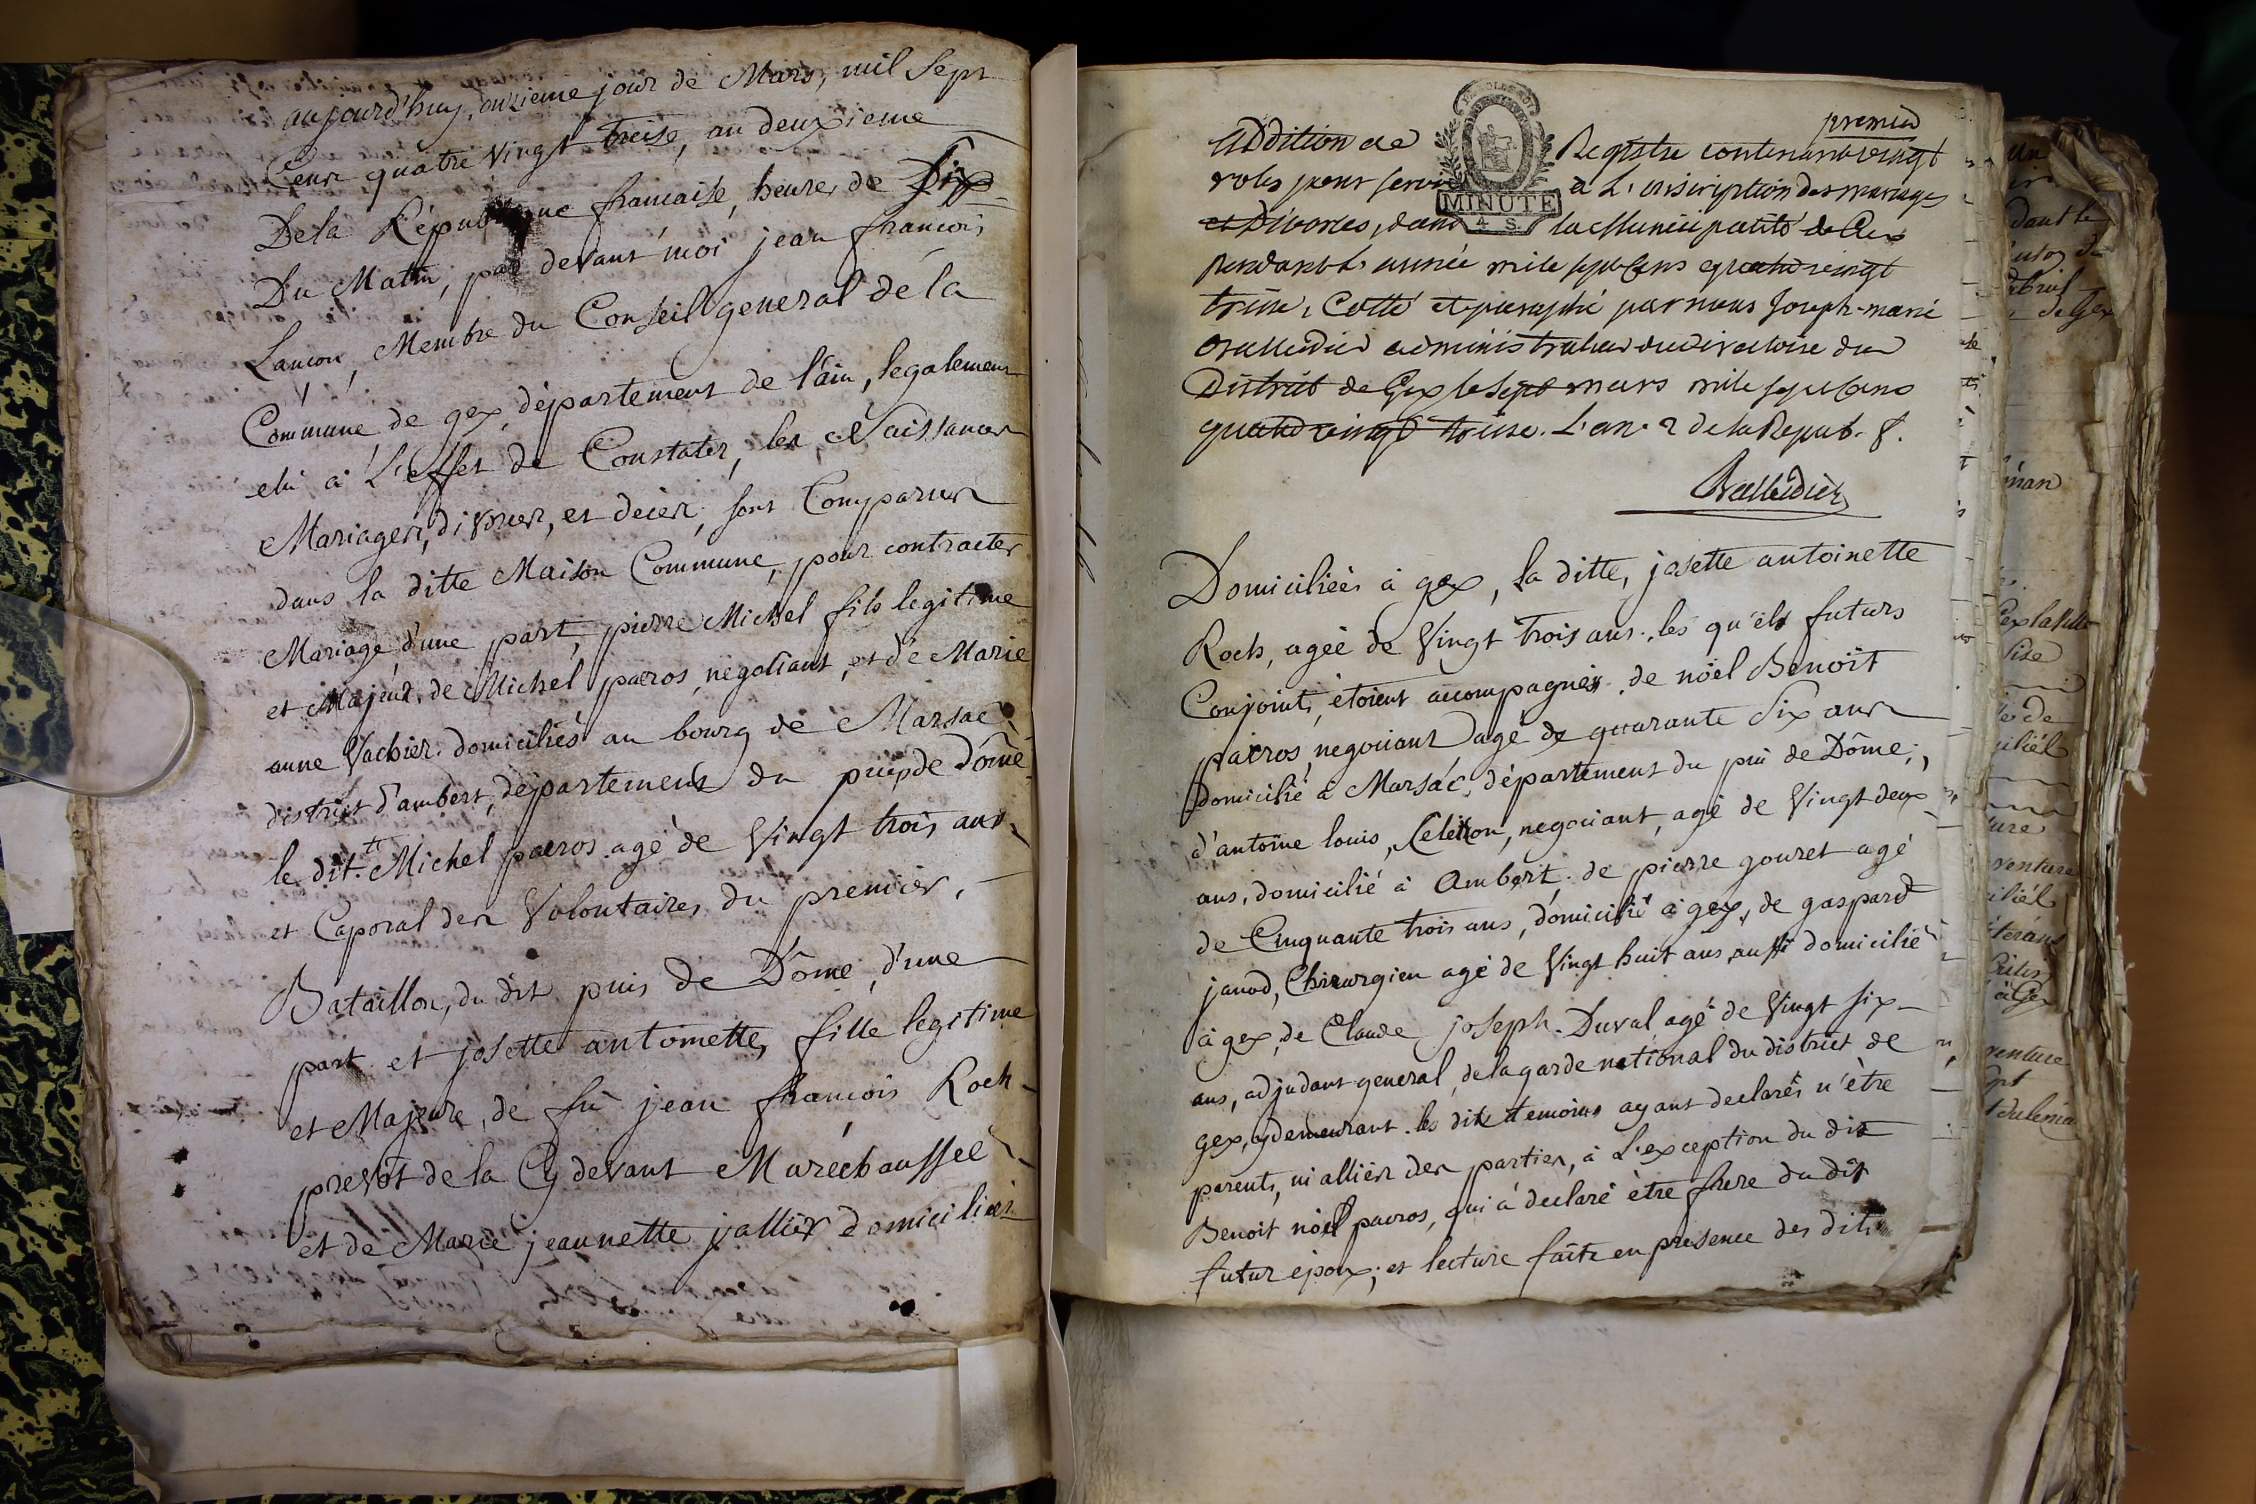 aujourd'huy, onzieme jour de Mars, mil Sept
Cent quatre Vingt treise, an deuxieme
De la République francaise, heure de Dix
Du Matin, par devant moi jean francois
Lancon, Membre du Conseil general de la
Commune de gex, département de l'ain, legalement
elu a L'effet de Constater, les Naissances
Mariages, divorces, et decés, sont Comparus
dans la ditte Maison Commune, pour contracter
Mariage d'une part, pierre Michel fils legitime
et Majeur, de Michel pacros, negotiant, et de Marie
anne Vachier. domiciliés au bourg de Marsac,
district d'ambert, département du puy de Dôme
le dit. Michel pacros agé de Vingt trois ans
et Caporal des Volontaires du premier,
Bataillon, du dit puis de Dôme, d'une
part et josette antoinette, fille legitime
et Majeure, de fû jean francois Roch
prevôt de la Cy devant Maréchaussée
et de Marie jeannette jallier domiciliées
premier
Addition de Registre contenant vingt
roles pour servir a L'inscription des mariages
MINUTE
4 S.
et Divorces, dans la Municipalité de Gex
pendant L'année mile sept Cens quatre vingt
treise, Cotté et paraphé par nous Joseph-marie
administrateur du Directoire du
District de Gex le sept mars mile sept Cens
quatre vingt treise. L'an. 2 de la Repub. f.
Domiciliées à gex, la ditte, josette antoinette
Roch, agée de Vingt trois ans. les qu'els futurs
Conjoints, étoient accompagnés, de nöel Benoit
pacros, negociant agé de quarante Six ans
domicilié a Marsac, département du pui de Dôme,
d'antoine louis, negociant, agé de Vingt deux
ans, domicilié à Ambert, de pierre gouret agé
de Cinquante trois ans, domicilié à gex, de gaspard
janod, Chirurgien agé de Vingt huit ans, aussi domicilié
à gex, de Claude joseph. Duval agé de Vingt six
ans, adjudant general, de la garde national du district de
gex, y demeurant. les dits temoins ayant declarés n'être
parents, ni alliés des parties, à L'exception du dit
Benoit nöel pacros, qui à declaré être frere du dit
futur epoux; et lecture faite en presence des dits